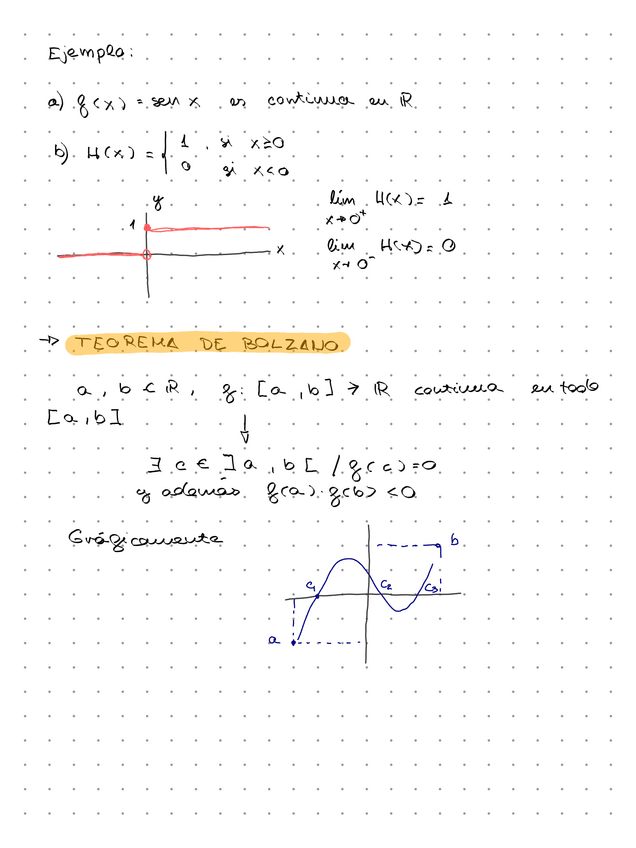 Ejemplo:
a) f(x) = sen x es continua en ℝ
b) H(x) = { 1, si x≥0
0 si x<0
y
1
x
lím H(x) = 1
x→0⁺
lim H(x) = 0
x→0⁻
→ TEOREMA DE BOLZANO
a, b ∈ ℝ, f: [a, b] → ℝ continua en todo
[a, b]
↓
∃ c ∈ ]a, b[ / f(c)=0
y además f(a)·f(b) <0
Gráficamente
b
c₁
c₂
c₃
a